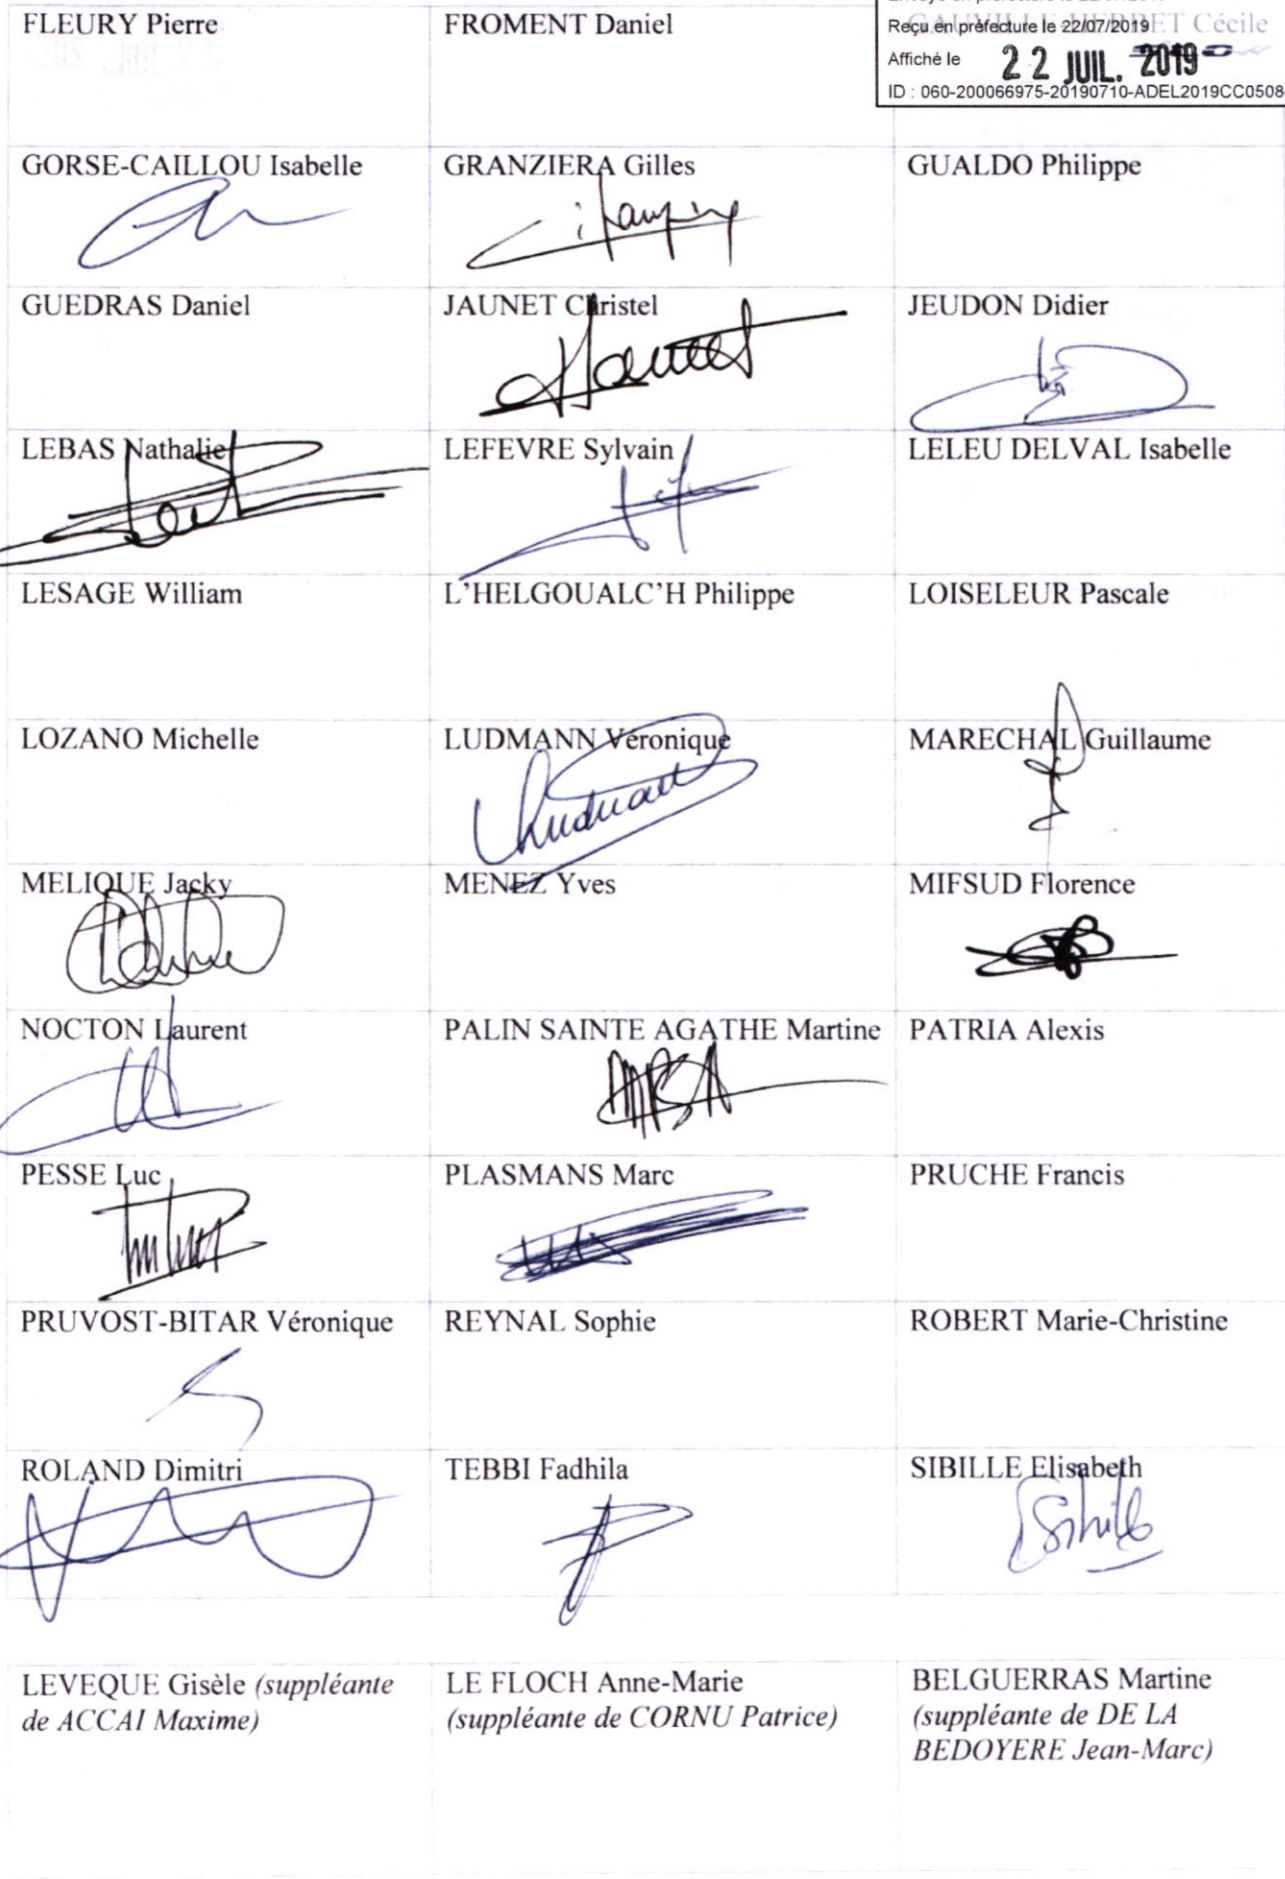 FLEURY Pierre
FROMENT Daniel
GAUVILLE-HERBET Cécile
Reçu en préfecture le 22/07/2019
Affiché le 22 JUIL. 2019
ID : 060-200066975-20190710-ADEL2019CC0508
GORSE-CAILLOU Isabelle
GRANZIERA Gilles
GUALDO Philippe
GUEDRAS Daniel
JAUNET Christel
JEUDON Didier
LEBAS Nathalie
LEFEVRE Sylvain
LELEU DELVAL Isabelle
LESAGE William
L'HELGOUALC'H Philippe
LOISELEUR Pascale
LOZANO Michelle
LUDMANN Véronique
MARECHAL Guillaume
MELIQUE Jacky
MENEZ Yves
MIFSUD Florence
NOCTON Laurent
PALIN SAINTE AGATHE Martine
PATRIA Alexis
PESSE Luc
PLASMANS Marc
PRUCHE Francis
PRUVOST-BITAR Véronique
REYNAL Sophie
ROBERT Marie-Christine
ROLAND Dimitri
TEBBI Fadhila
SIBILLE Elisabeth
LEVEQUE Gisèle (suppléante
de ACCAI Maxime)
LE FLOCH Anne-Marie
(suppléante de CORNU Patrice)
BELGUERRAS Martine
(suppléante de DE LA
BEDOYERE Jean-Marc)